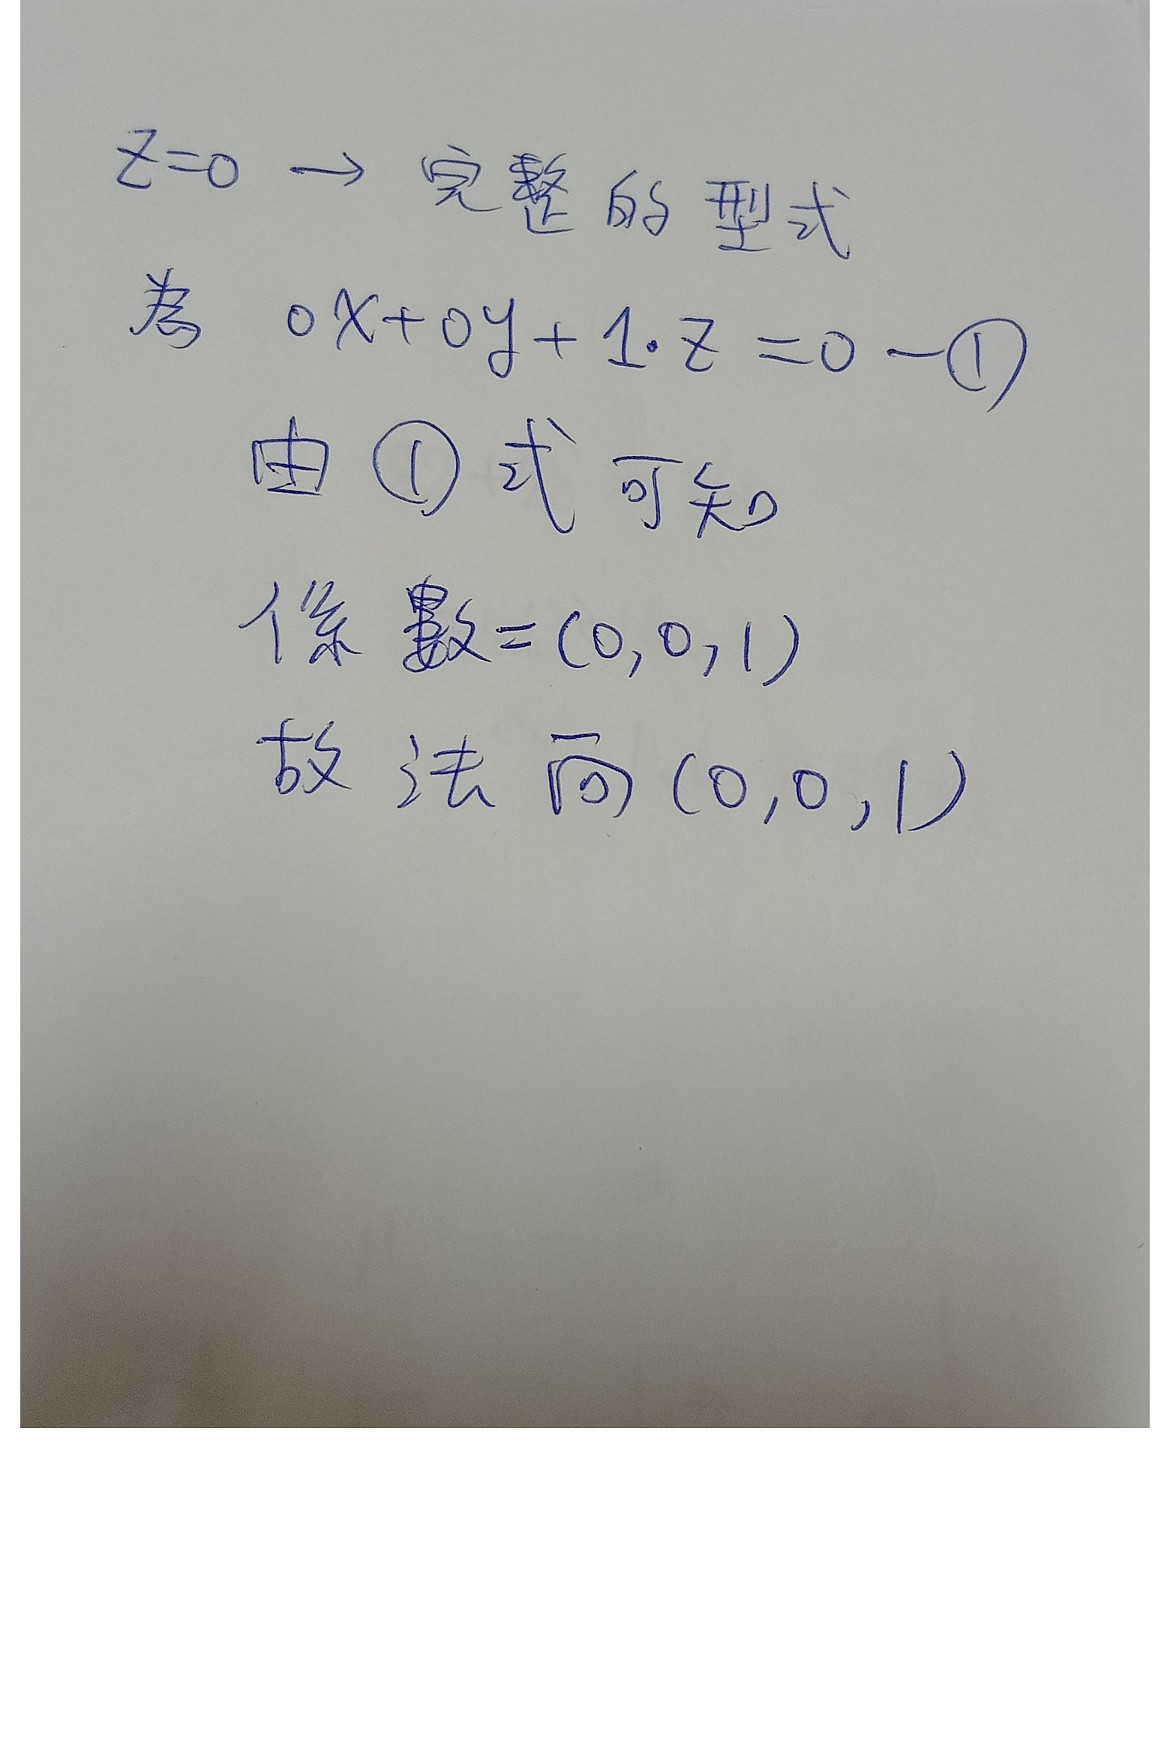 z=0 → 完整的型式
為 0x+0y+1·z=0 —①
由①式可知
係數=(0,0,1)
故法向(0,0,1)